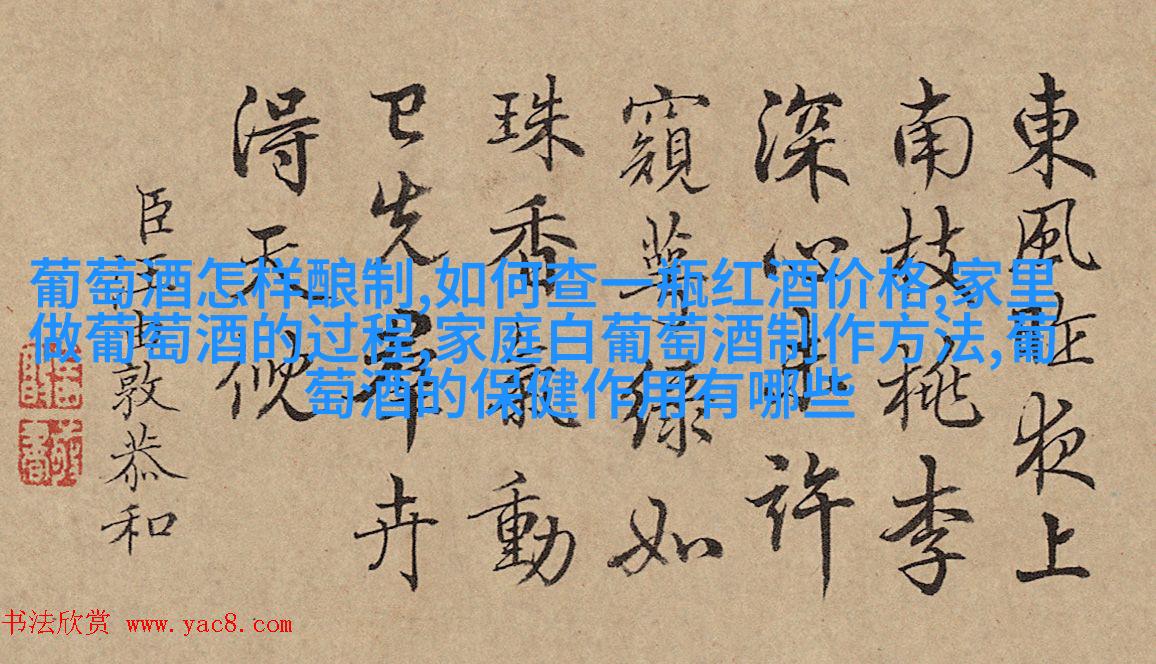 東風昨夜上
南枝桃李
深心未許
窺萼綠如
珠香氣動
已先羣卉
得天倪
臣汪由敦恭和
葡萄酒怎样酿制,如何查一瓶红酒价格,家里
做葡萄酒的过程,家庭白葡萄酒制作方法,葡
萄酒的保健作用有哪些
书法欣赏 www.yac8.com